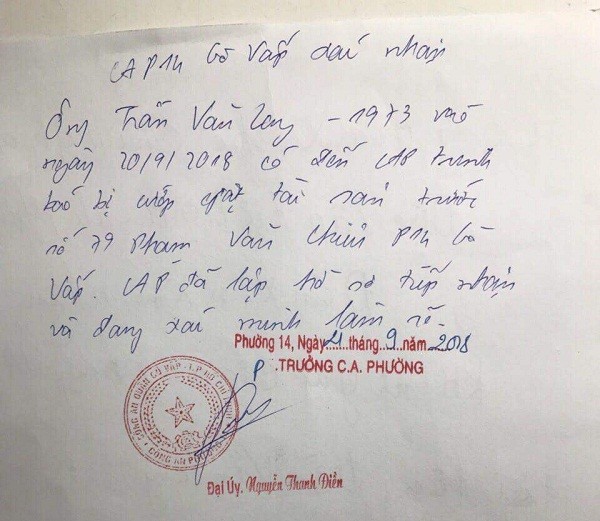 CA P14 Gò Vấp xác nhận
Ông Trần Văn Long - 1973 vào
ngày 20/9/2018 có đến CAP trình
báo bị cướp giật tài sản trước
số 79 Phạm Văn Chiêu P14 Gò
Vấp. CAP đã lập hồ sơ tiếp nhận
và đang xác minh làm rõ.
Phường 14, Ngày 21 tháng 9 năm 2018
P. TRƯỞNG C.A. PHƯỜNG
CÔNG AN QUẬN GÒ VẤP - T.P HỒ CHÍ MINH
CÔNG AN PHƯỜNG
Đại Úy. Nguyễn Thanh Điền